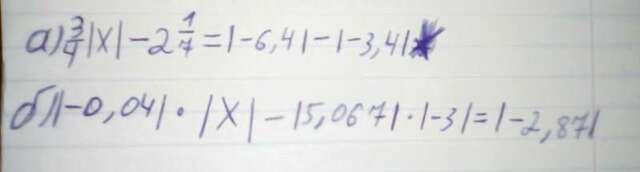 а) 3/4 |x| - 2 1/7 = |-6,4| - |-3,4|
б) |-0,04| · |x| - |5,067| · |-3| = |-2,87|